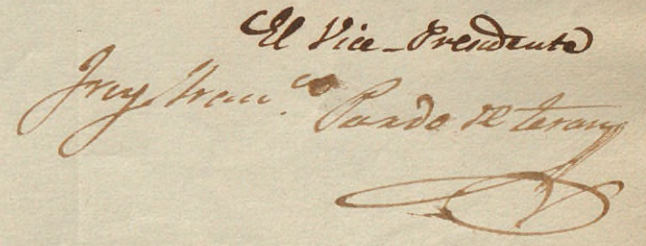 El Vice-Presidente
Frey Fran.co Pando de teran